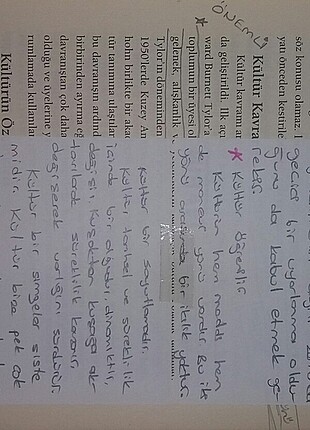 ÖNEMLİ
söz konusu olamaz.
yan önceden kestirile
Kültür Kavra
Kültür kavramı an
da geliştirildi. İlk açı
ward Burnett Tylor'a
toplumun bir üyesi ol
gelenek, alışkanlık v
Tylor'ın döneminden
1950'lerde Kuzey An
holm birlikte bir akad
tür tanımına ulaştılar
bu davranışın ardınd
birbirinden ayırma eğ
davranıştan çok daha
olduğu ve üyelerine y
rumlamada kullanılan
Kültürün Öz
geçici bir uyarlanma oldu
ğunu da kabul etmek ge
rekir.
* Kültür öğrenilir
Kültürün hem maddi hem
de manevi yönü vardır. Bu iki
yönü arasında bir ikilik yoktur.
Kültür bir soyutlamadır.
Kültür, tarihsel ve süreklilik
içinde bir olgudur, dinamiktir,
değişir, kuşaktan kuşağa ak-
tarılarak süreklilik kazanır.
değişerek varlığını sürdürür.
Kültür bir simgeler siste
midir. Kültür bize pek çok